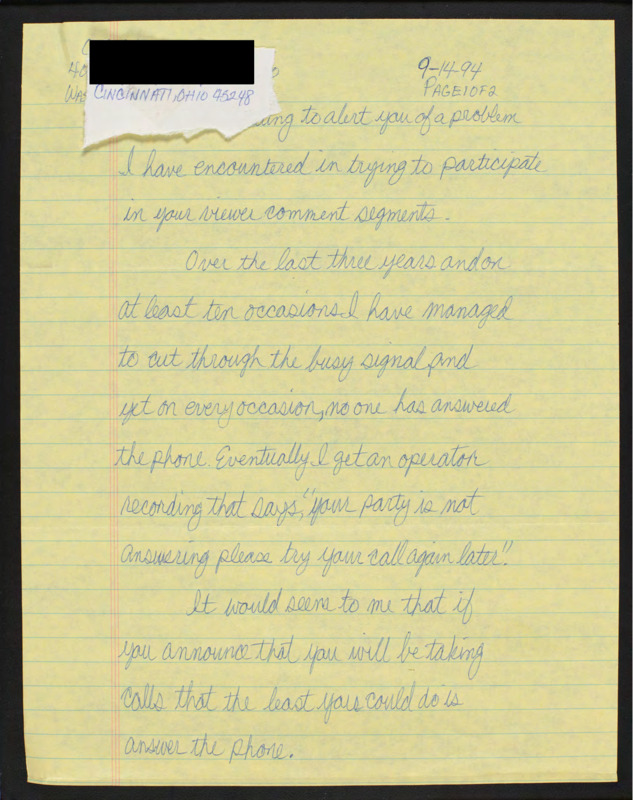 9-14-94
PAGE 1 OF 2
CINCINNATI, OHIO 45248
to alert you of a problem
I have encountered in trying to participate
in your viewer comment segments.
Over the last three years and on
at least ten occasions I have managed
to cut through the busy signal, and
yet on every occasion, no one has answered
the phone. Eventually I get an operator
recording that says, "your party is not
answering please try your call again later".
It would seem to me that if
you announce that you will be taking
calls that the least you could do is
answer the phone.